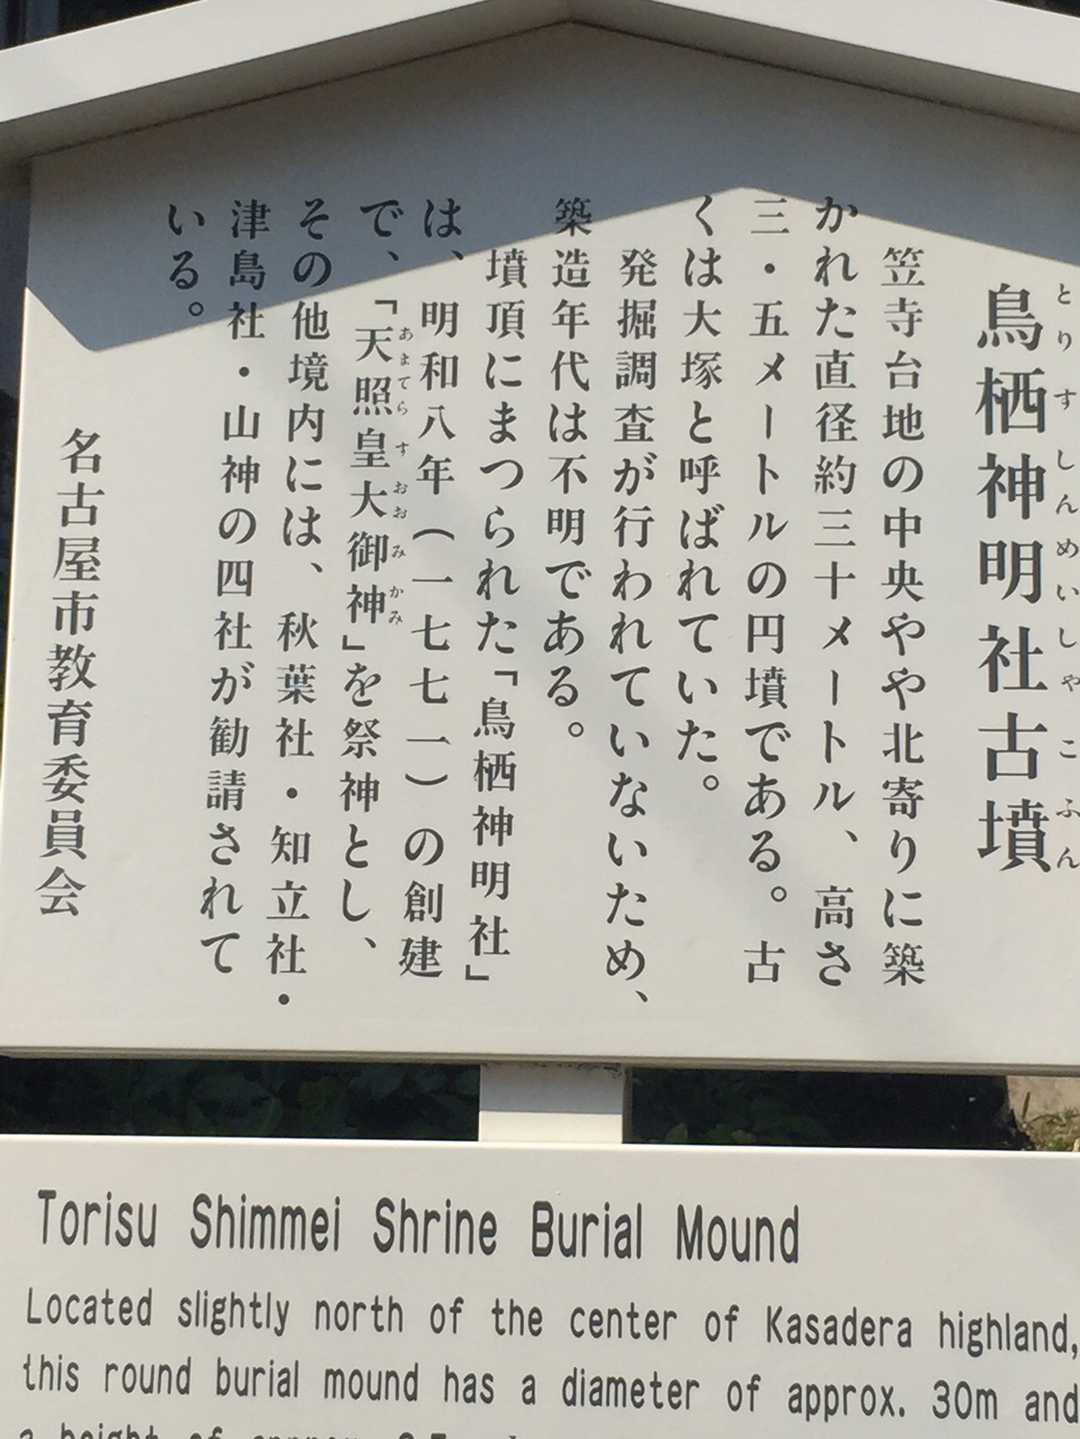 鳥栖神明社古墳
とりすしんめいしゃこふん
笠寺台地の中央やや北寄りに築
かれた直径約三十メートル、高さ
三・五メートルの円墳である。古
くは大塚と呼ばれていた。
発掘調査が行われていないため、
築造年代は不明である。
墳頂にまつられた「鳥栖神明社」
は、明和八年(一七七一)の創建
で、「天照皇大御神」を祭神とし、
あまてらすおおみかみ
その他境内には、秋葉社・知立社・
津島社・山神の四社が勧請されて
いる。
名古屋市教育委員会
Torisu Shimmei Shrine Burial Mound
Located slightly north of the center of Kasadera highland,
this round burial mound has a diameter of approx. 30m and
a height of approx. 3.5m